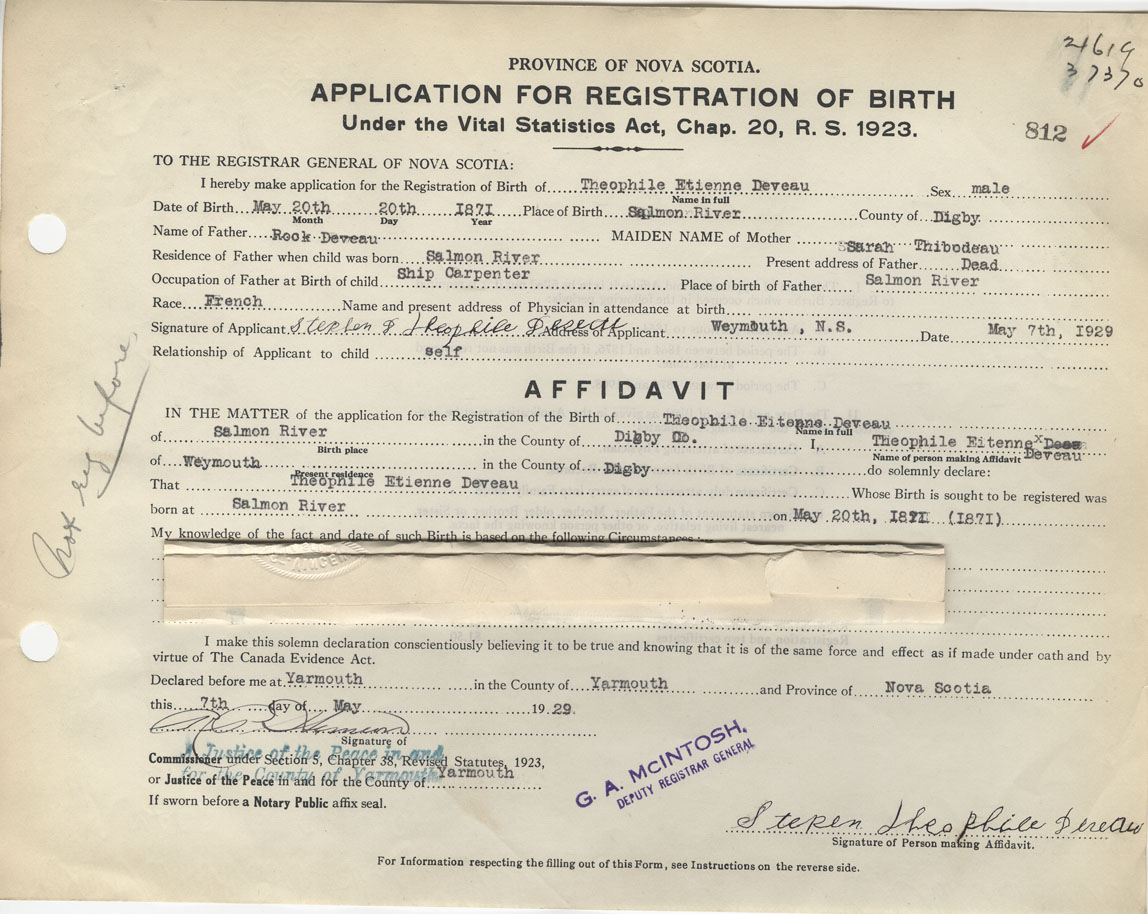 21619
37370
PROVINCE OF NOVA SCOTIA.
APPLICATION FOR REGISTRATION OF BIRTH
Under the Vital Statistics Act, Chap. 20, R. S. 1923.
812 ✓
TO THE REGISTRAR GENERAL OF NOVA SCOTIA:
I hereby make application for the Registration of Birth of Theophile Etienne Deveau Sex male
Name in full
Date of Birth May 20th 20th 1871 Place of Birth Salmon River County of Digby.
Month Day Year
Name of Father Rock Deveau MAIDEN NAME of Mother Sarah Thibodeau
Residence of Father when child was born Salmon River Present address of Father Dead
Occupation of Father at Birth of child Ship Carpenter Place of birth of Father Salmon River
Race French Name and present address of Physician in attendance at birth
Signature of Applicant Theophile Address of Applicant Weymouth, N.S. Date May 7th, 1929
Relationship of Applicant to child self
Not reg before
AFFIDAVIT
IN THE MATTER of the application for the Registration of the Birth of Theophile Eitenne Deveau
Name in full
of Salmon River in the County of Digby Co. I, Theophile Eitenne x Deveau
Birth place Name of person making Affidavit
of Weymouth in the County of Digby do solemnly declare:
Present residence
That Theophile Etienne Deveau Whose Birth is sought to be registered was
born at Salmon River on May 20th, 1871 (1871)
My knowledge of the fact and date of such Birth is based on the following Circumstances:
I make this solemn declaration conscientiously believing it to be true and knowing that it is of the same force and effect as if made under oath and by
virtue of The Canada Evidence Act.
Declared before me at Yarmouth in the County of Yarmouth and Province of Nova Scotia
this 7th day of May 1929.
Signature of
A Justice of the Peace in and
for the County of Yarmouth
Commissioner under Section 5, Chapter 38, Revised Statutes, 1923,
or Justice of the Peace in and for the County of Yarmouth
If sworn before a Notary Public affix seal.
G. A. MCINTOSH,
DEPUTY REGISTRAR GENERAL
Stepen Theophile Deveau
Signature of Person making Affidavit.
For Information respecting the filling out of this Form, see Instructions on the reverse side.